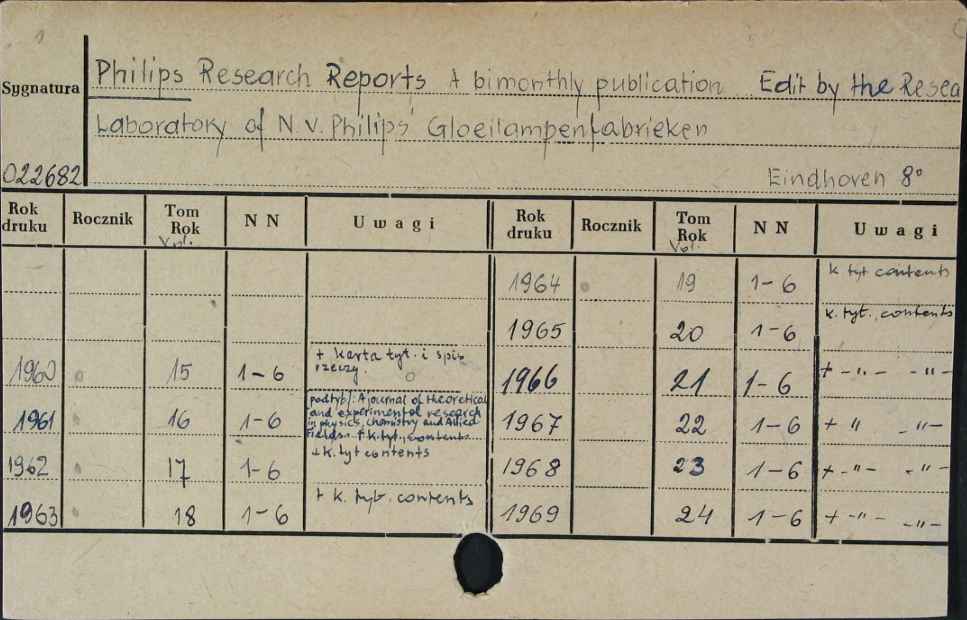 1
Sygnatura
Philips Research Reports A bimonthly publication Edit by the Resea
Laboratory of N.V. Philips' Gloeilampenfabrieken
022682
Eindhoven 8°
Rok druku Rocznik Tom Rok Vol. N N Uwagi Rok druku Rocznik Tom Rok Vol. N N Uwagi
1964 19 1-6 k tyt contents
1965 20 1-6 k. tyt., contents
1960 15 1-6 + karta tyt. i spis rzeczy.
1966 21 1-6 + -"- -"-
1961 16 1-6 podtyt.: A journal of theoretical
and experimental research
in physics, chemistry and Allied
Fields. + k. tyt., contents
1967 22 1-6 + " -"-
1962 17 1-6 + k. tyt contents
1968 23 1-6 + -"- -"-
1963 18 1-6 + k. tyt. contents
1969 24 1-6 + -"- -"-